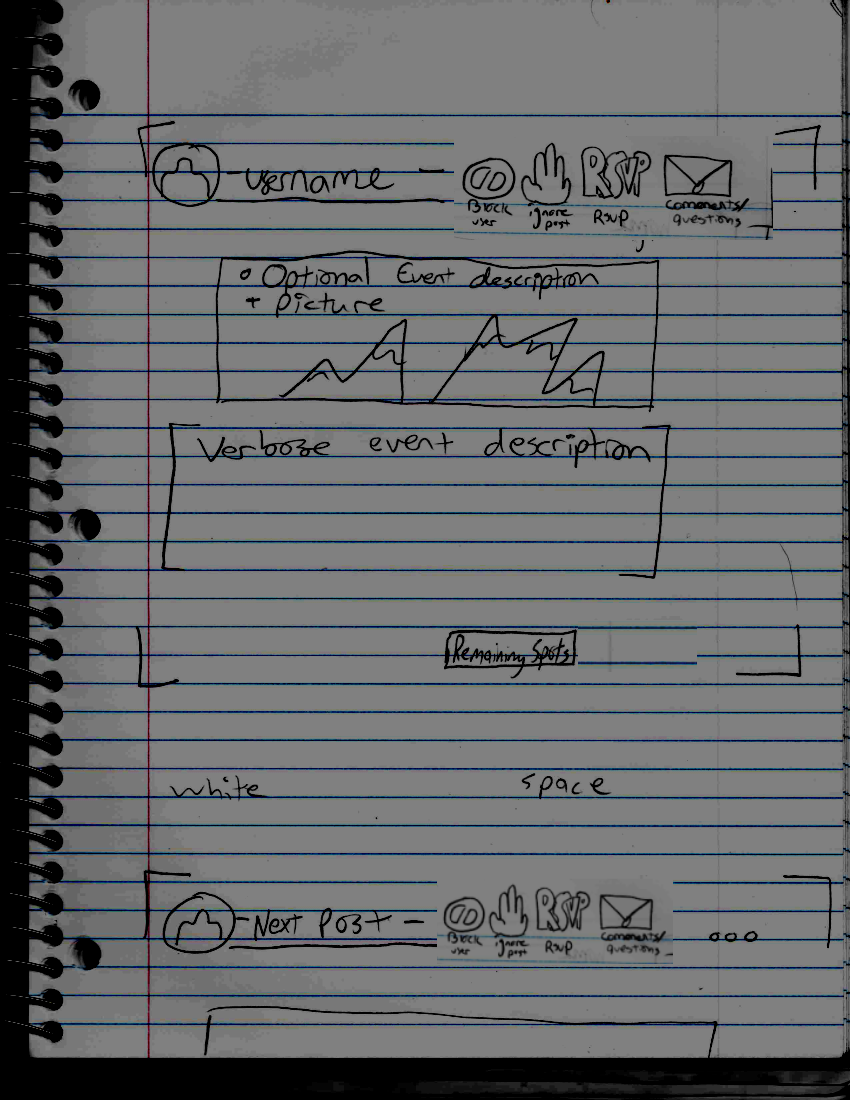 -username-
Block user
ignore post
RSVP
RSVP
comments/ questions
o Optional Event description
+ picture
Verboze event description
Remaining Spots
white space
-Next Post-
Block user
ignore post
RSVP
RSVP
comments/ questions
ooo